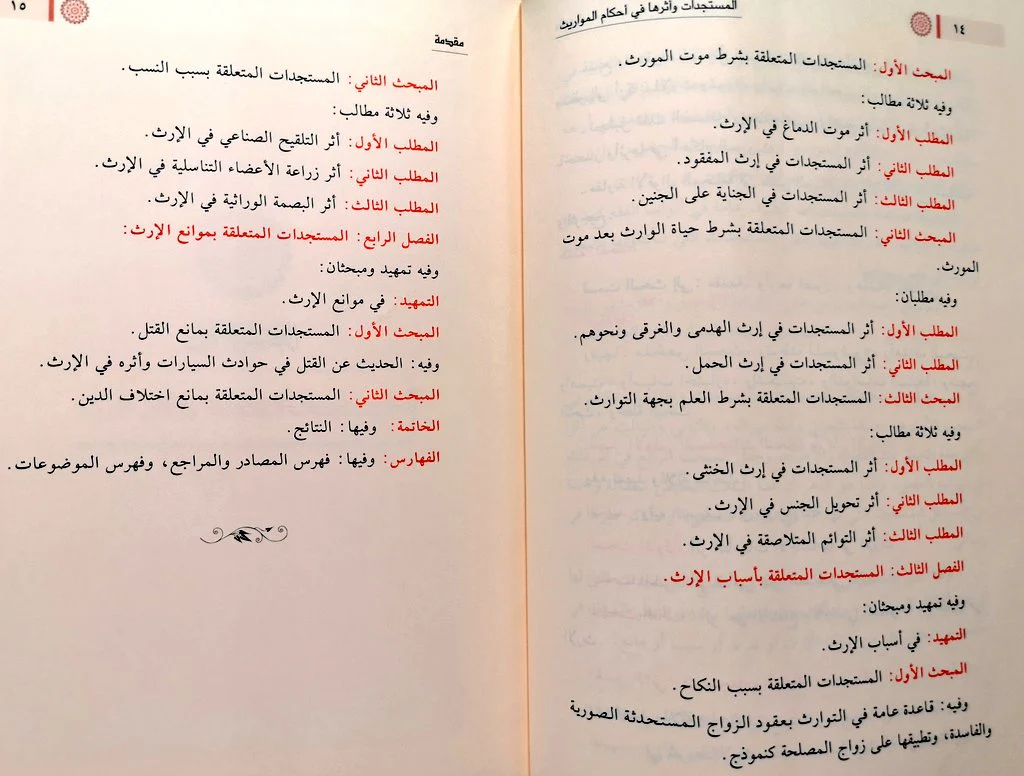 ١٤
المستجدات وأثرها في أحكام المواريث
المبحث الأول: المستجدات المتعلقة بشرط موت المورث.
وفيه ثلاثة مطالب:
المطلب الأول: أثر موت الدماغ في الإرث.
المطلب الثاني: أثر المستجدات في إرث المفقود.
المطلب الثالث: أثر المستجدات في الجناية على الجنين.
المبحث الثاني: المستجدات المتعلقة بشرط حياة الوارث بعد موت
المورث.
وفيه مطلبان:
المطلب الأول: أثر المستجدات في إرث الهدمى والغرقى ونحوهم.
المطلب الثاني: أثر المستجدات في إرث الحمل.
المبحث الثالث: المستجدات المتعلقة بشرط العلم بجهة التوارث.
وفيه ثلاثة مطالب:
المطلب الأول: أثر المستجدات في إرث الخنثى.
المطلب الثاني: أثر تحويل الجنس في الإرث.
المطلب الثالث: أثر التوائم المتلاصقة في الإرث.
الفصل الثالث: المستجدات المتعلقة بأسباب الإرث.
وفيه تمهيد ومبحثان:
التمهيد: في أسباب الإرث.
المبحث الأول: المستجدات المتعلقة بسبب النكاح.
وفيه: قاعدة عامة في التوارث بعقود الزواج المستحدثة الصورية
والفاسدة، وتطبيقها على زواج المصلحة كنموذج.
١٥
مقدمة
المبحث الثاني: المستجدات المتعلقة بسبب النسب.
وفيه ثلاثة مطالب:
المطلب الأول: أثر التلقيح الصناعي في الإرث.
المطلب الثاني: أثر زراعة الأعضاء التناسلية في الإرث.
المطلب الثالث: أثر البصمة الوراثية في الإرث.
الفصل الرابع: المستجدات المتعلقة بموانع الإرث:
وفيه تمهيد ومبحثان:
التمهيد: في موانع الإرث.
المبحث الأول: المستجدات المتعلقة بمانع القتل.
وفيه: الحديث عن القتل في حوادث السيارات وأثره في الإرث.
المبحث الثاني: المستجدات المتعلقة بمانع اختلاف الدين.
الخاتمة: وفيها: النتائج.
الفهارس: وفيها: فهرس المصادر والمراجع، وفهرس الموضوعات.